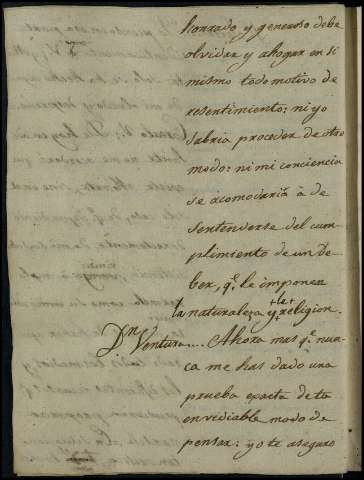 honrado y generoso debe
olvidar y ahogar en si
mismo todo motivo de
resentimiento: ni yo
sabria proceder de otro
modo: ni mi conciencia
se acomodaria à de
sentenderse del cum
plimiento de un de
ber, q.e le imponen
la naturaleza y +la+ religion.
Dn Ventura... Ahora mas q.e nun
ca me has dado una
prueba exacta de tu
envidiable modo de
pensar: yo te aseguro